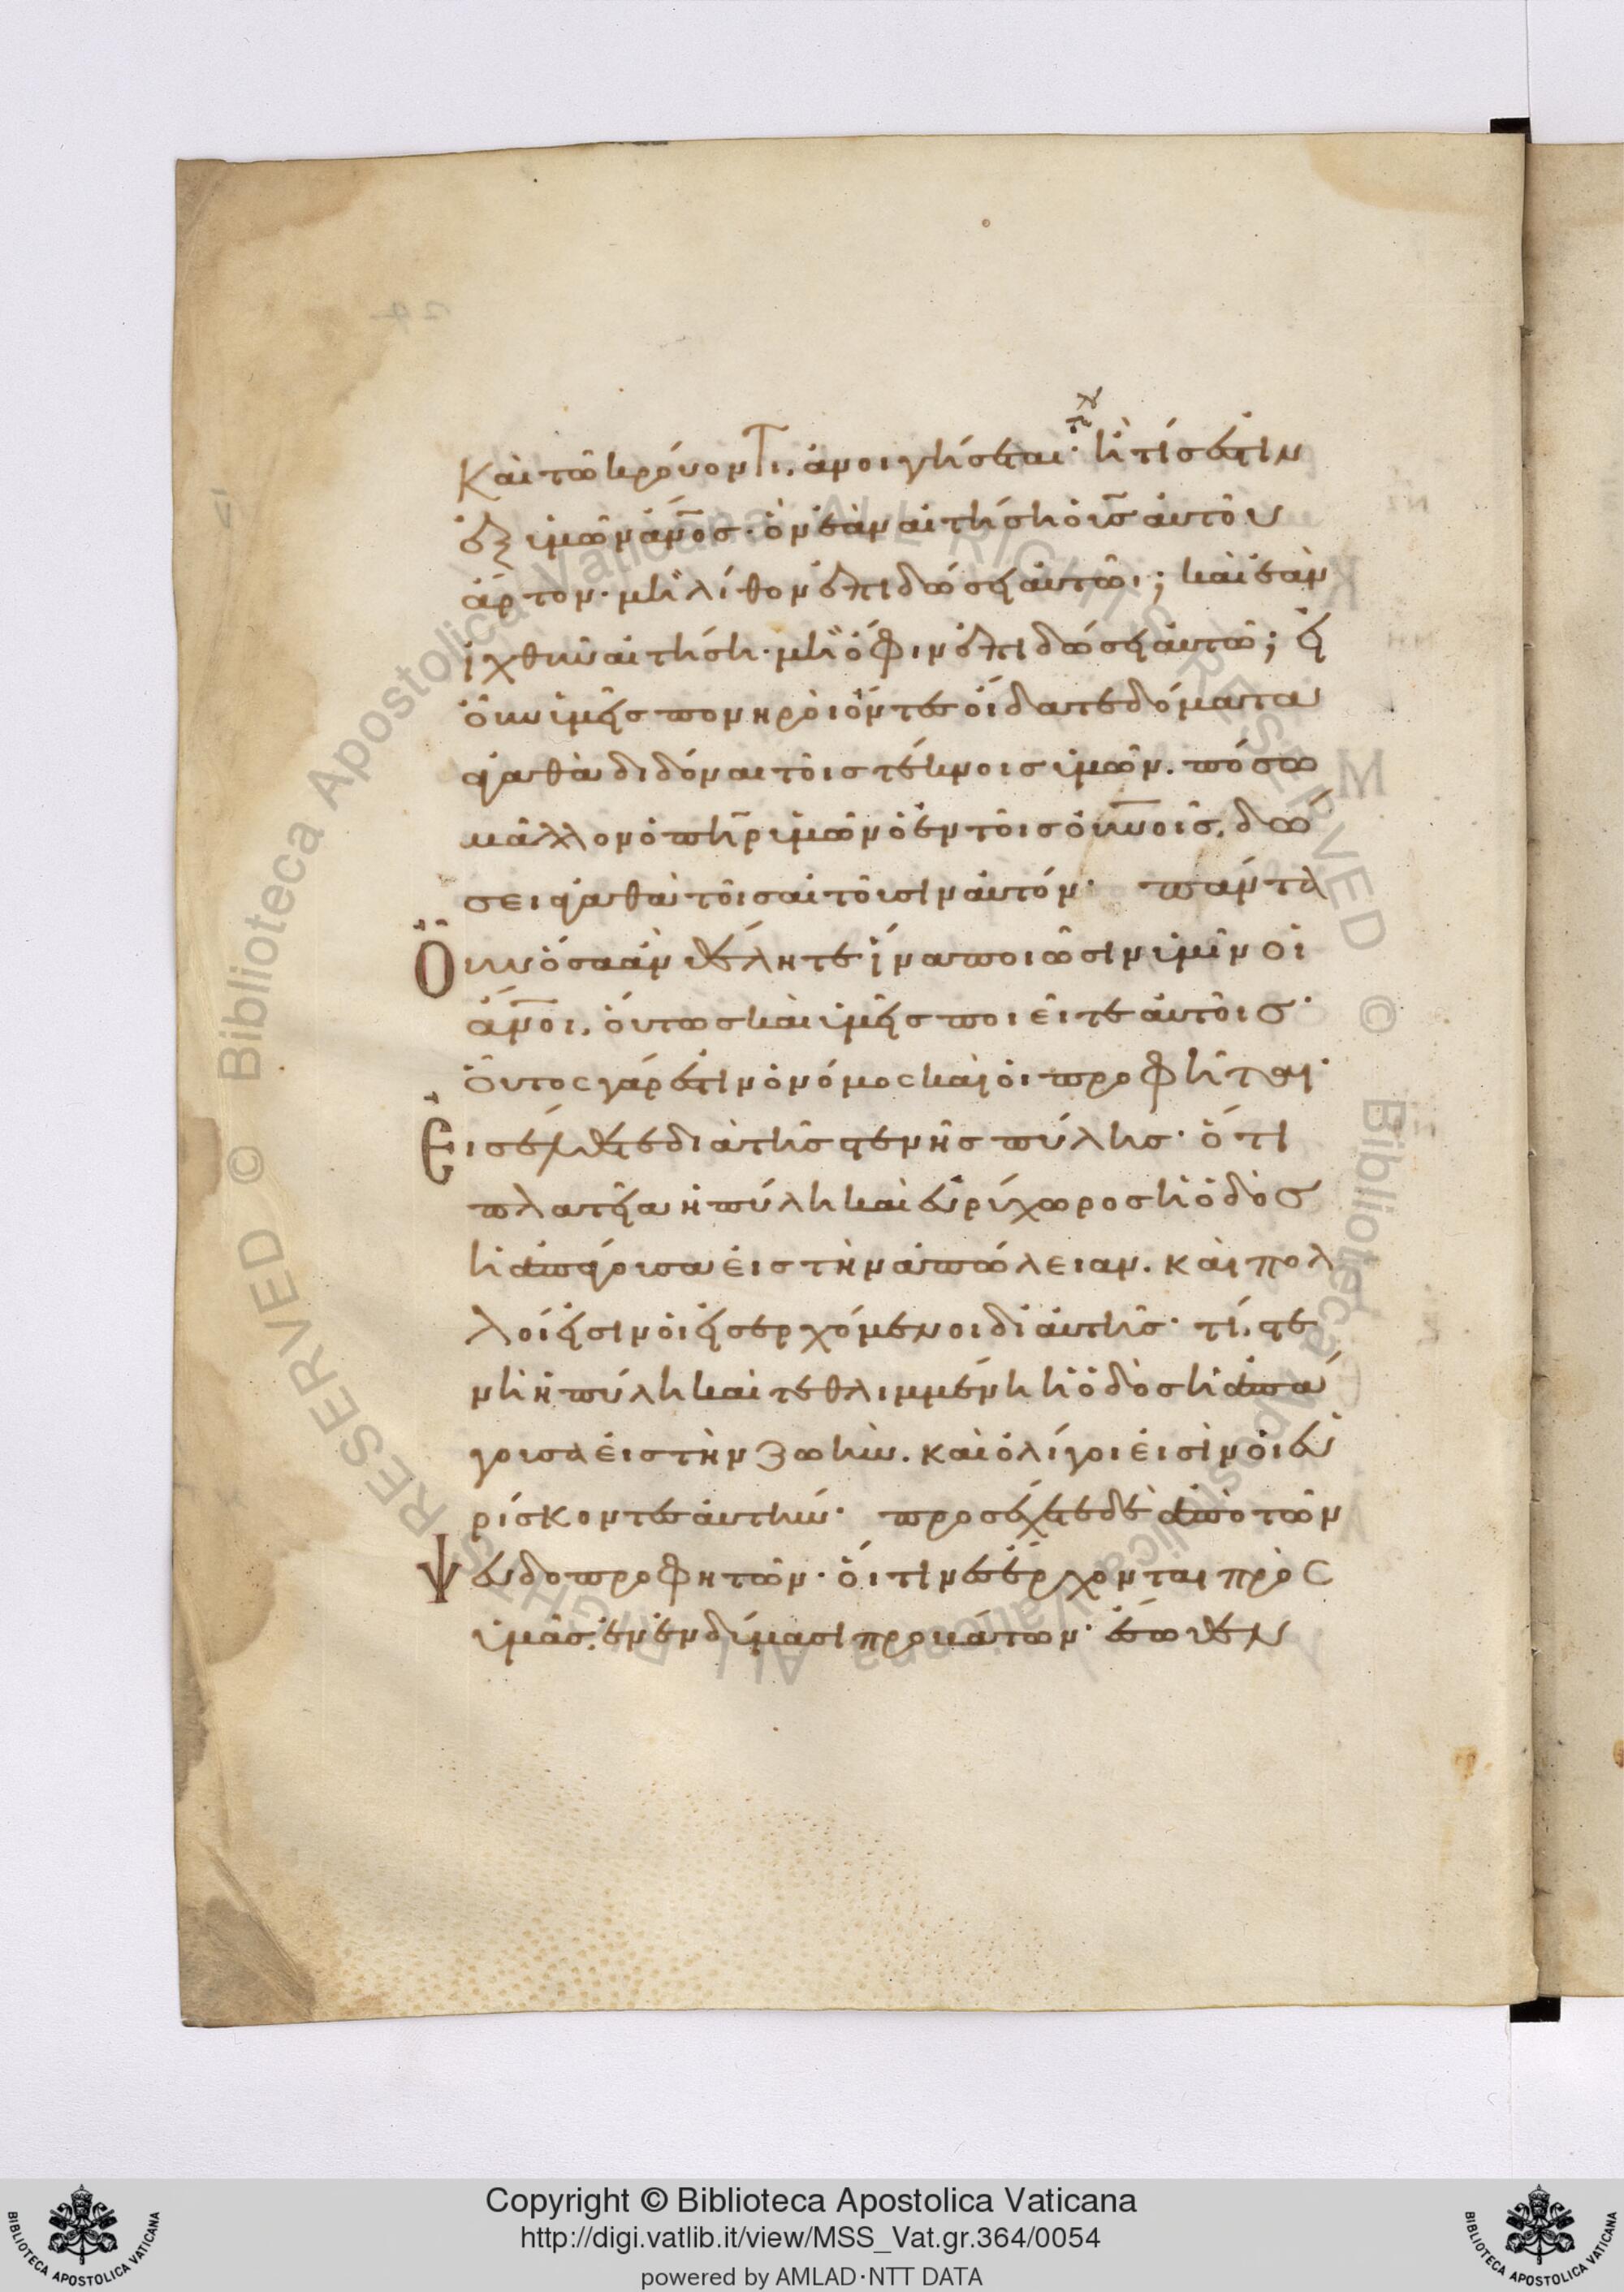 Καὶ τῶ κρούοντι, ἀνοιγήσεται· ἢ τίς ἐστιν
ἐξ ὑμῶν ἄνος· ὃν ἐὰν αἰτήση ὁ υς αυτου
ἄρτον· μὴ λίθον ἐπιδώσει αὐτῶι; καὶ ἐὰν
ἰχθὺν αἰτήση· μὴ ὄφιν ἐπιδώσει αὐτῶ; εἰ
οὖν ὑμεῖς πονηροὶ ὄντες οἴδατε δόματα
ἀγαθὰ διδόναι τοῖς τέκνοις ὑμῶν. πόσω
μᾶλλον ὁ πηρ ὑμῶν ὁ ἐν τοῖς ουνοις, δώ
σει ἀγαθὰ τοῖς αἰτοῦσιν αὐτόν· πάντα
Οὖν ὅσα ἂν θέλητε ἵνα ποιῶσιν ὑμῖν οἱ
ἄνοι, οὕτως καὶ ὑμεῖς ποιεῖτε αὐτοῖς·
Οὗτος γάρ ἐστιν ὁ νόμος καὶ οἱ προφῆται·
Εἰσέλθετε διὰ τῆς στενῆς πύλης· ὅτι
πλατεῖα ἡ πύλη καὶ εὐρύχωρος ἡ ὁδὸς
ἡ ἀπάγουσα εἰς τὴν ἀπώλειαν. καὶ πολ
λοί εἰσιν οἱ εἰσερχόμενοι δι' αὐτῆς· τί, στε
νὴ ἡ πύλη καὶ τεθλιμμένη ἡ ὁδὸς ἡ ἀπά
γουσα εἰς τὴν ζωήν. καὶ ὀλίγοι εἰσὶν οἱ εὑ
ρίσκοντες αὐτήν· προσέχετε δὲ ἀπὸ τῶν
Ψευδοπροφητῶν· οἵτινες ἔρχονται πρὸς
ὑμᾶς, ἐν ἐνδύμασι προβάτων· ἔσωθεν
Copyright © Biblioteca Apostolica Vaticana
http://digi.vatlib.it/view/MSS_Vat.gr.364/0054
powered by AMLAD·NTT DATA